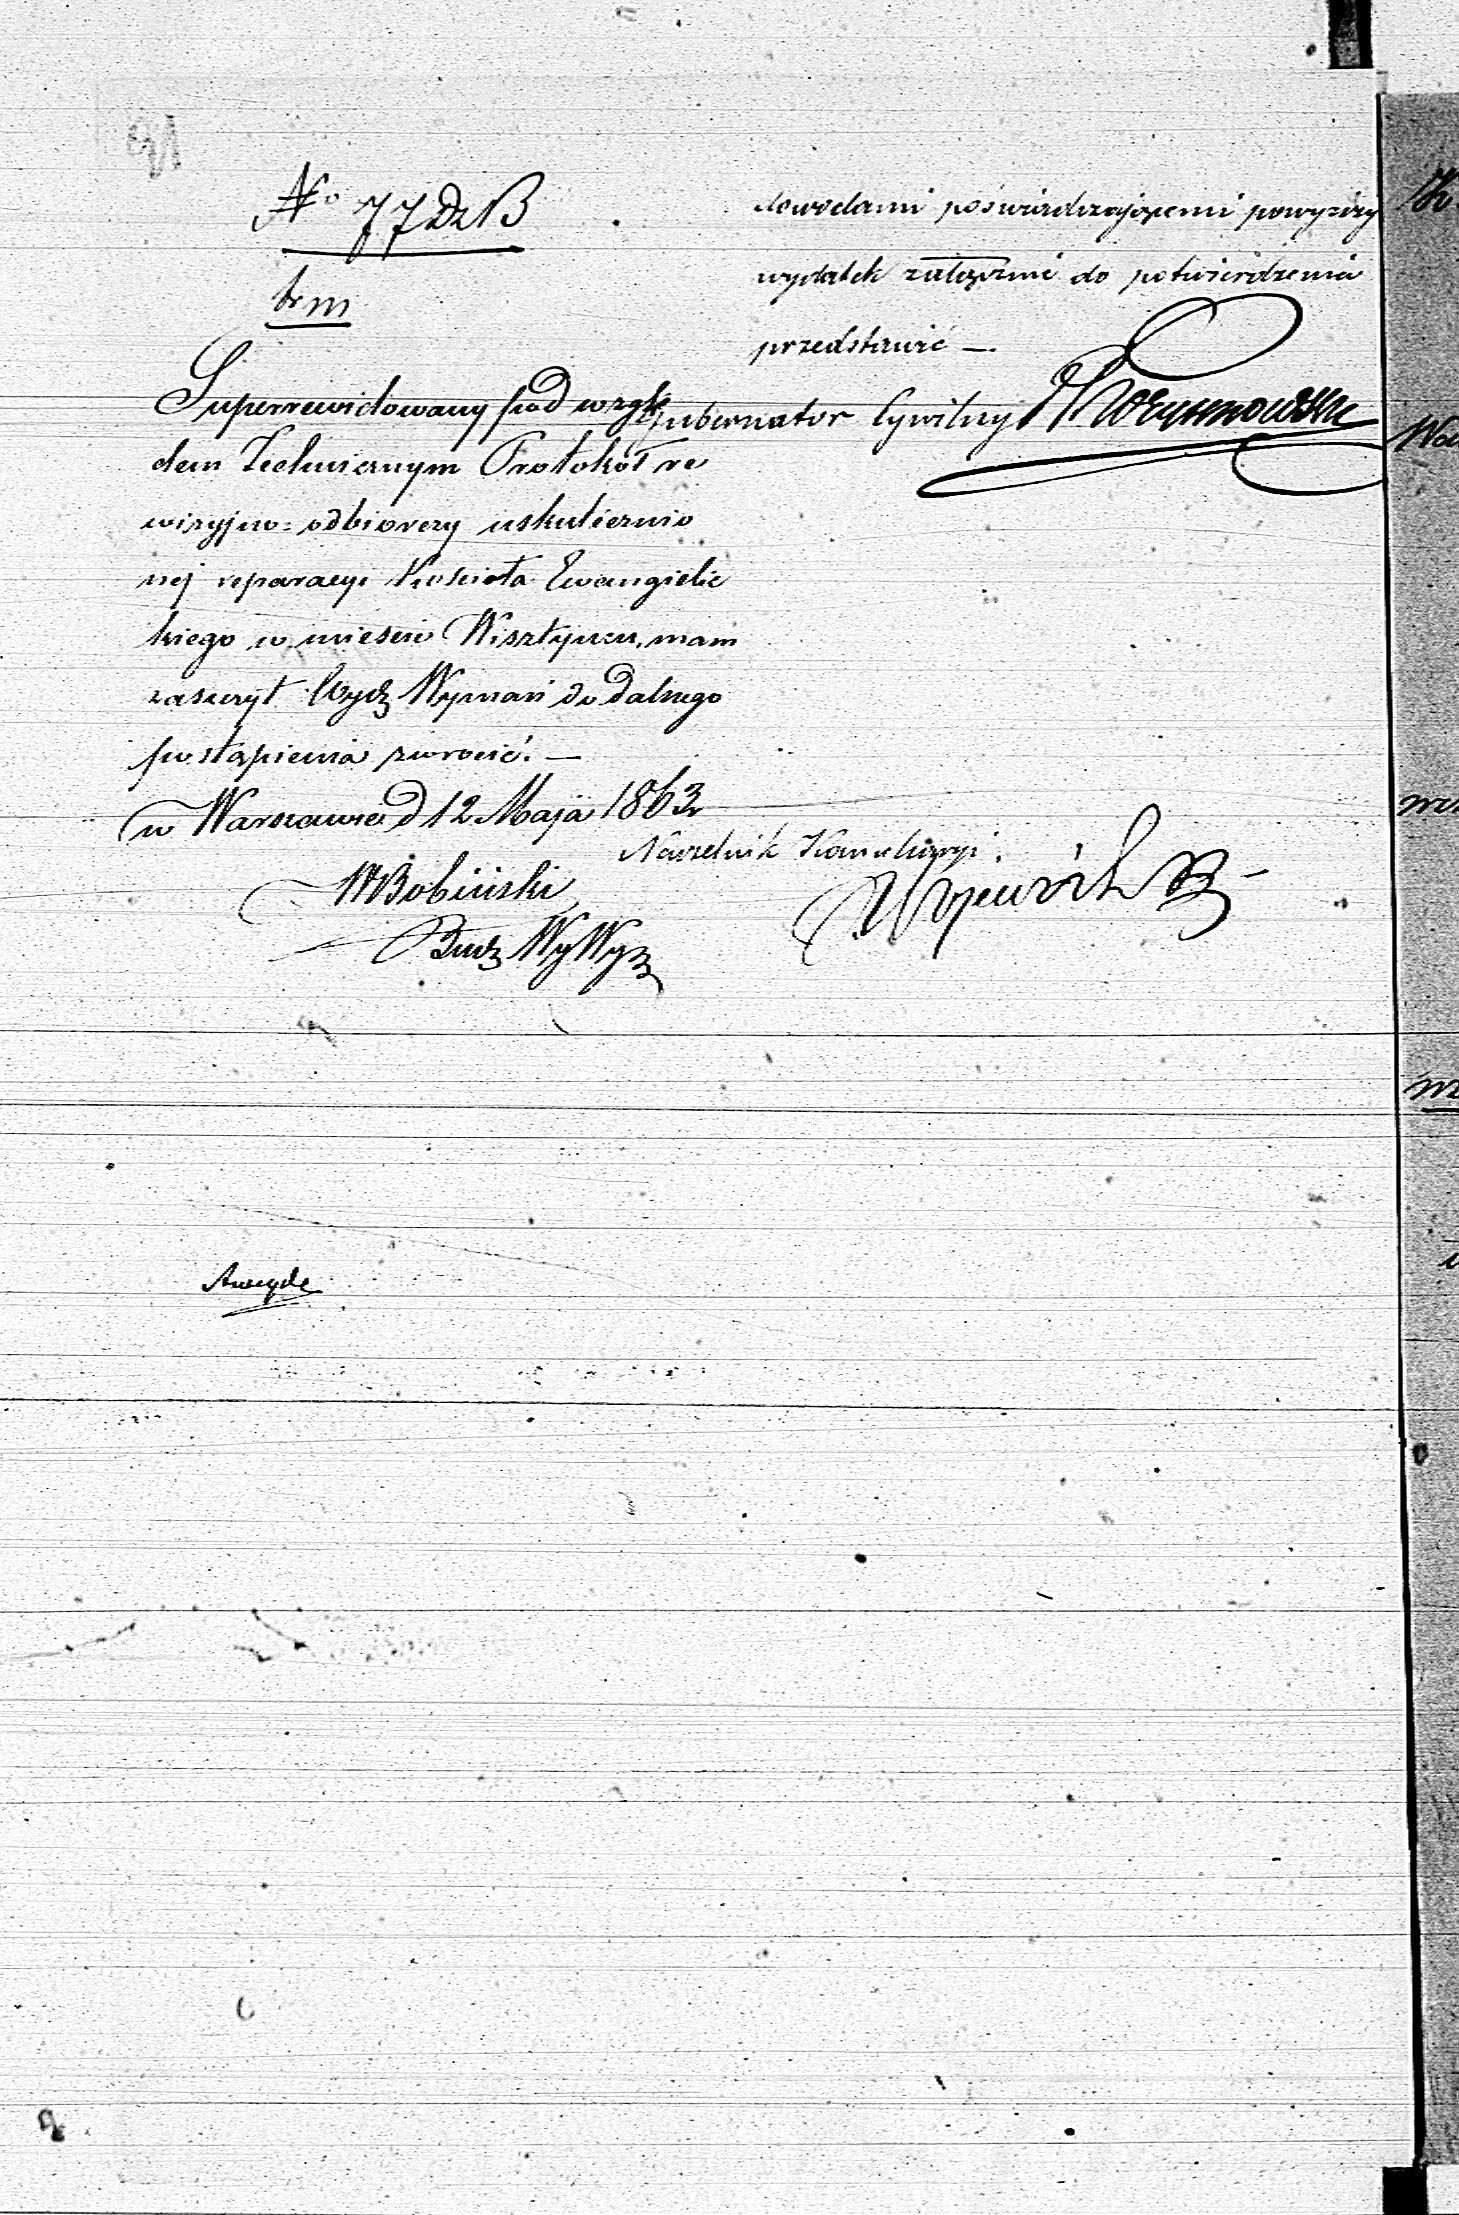 No 77 Dz B
br m
Superrewidowany pod wzglę
dem Technicznym Protokół re
wizyjno=odbiorczy uskutecznio
nej reparacyi Kościoła Ewangielic
kiego w mieście Wisztyncu, mam
zaszczyt Wydz Wyznań do dalszego
postąpienia zwrócić. —
w Warszawie d 12 Maja 1863 r
WBobiński
Bud WyWyz
dowodami poświadczającemi powyższy
wydatek załącznie do potwierdzenia
przedstawić —
Gubernator Cywilny
Naczelnik Kancelaryi
Aweyde